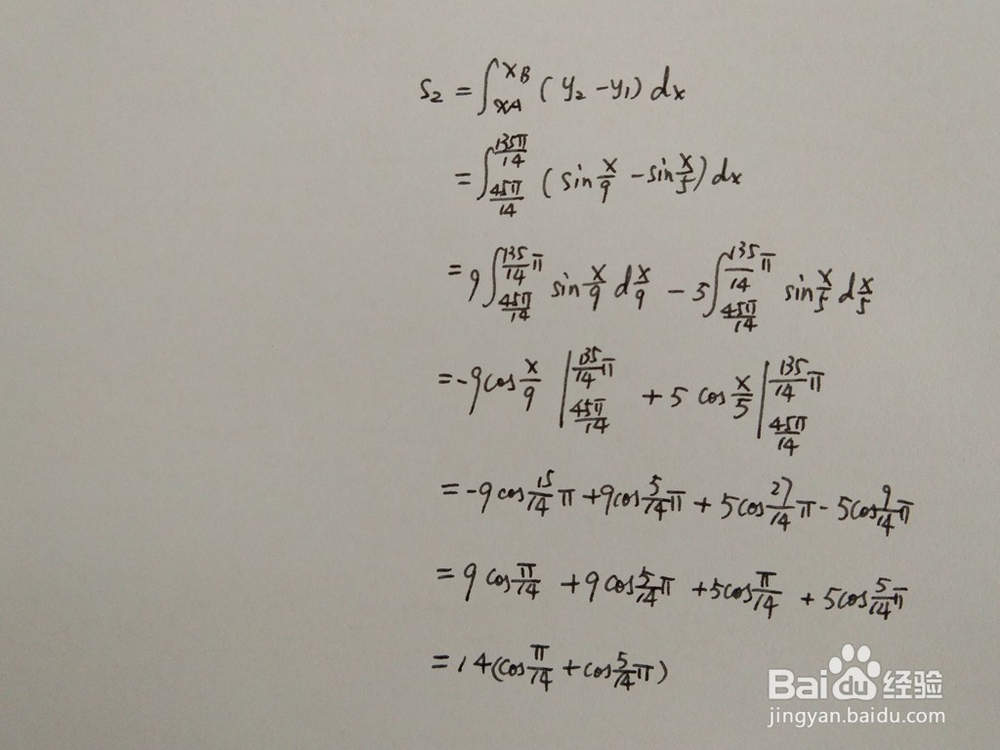 S₂ = ∫_{xA}^{xB} (y₂ - y₁) dx
= ∫_{45π/14}^{135π/14} (sin x/9 - sin x/5) dx
= 9∫_{45π/14}^{135/14 π} sin x/9 d x/9 - 5∫_{45π/14}^{135/14 π} sin x/5 d x/5
= -9cos x/9 |_{45π/14}^{135/14 π} + 5 cos x/5 |_{45π/14}^{135/14 π}
= -9 cos 15/14 π + 9cos 5/14 π + 5cos 27/14 π - 5cos 9/14 π
= 9 cos π/14 + 9 cos 5/14 π + 5cos π/14 + 5cos 5/14 π
= 14(cos π/14 + cos 5/14 π)
Baidu 经验
jingyan.baidu.com